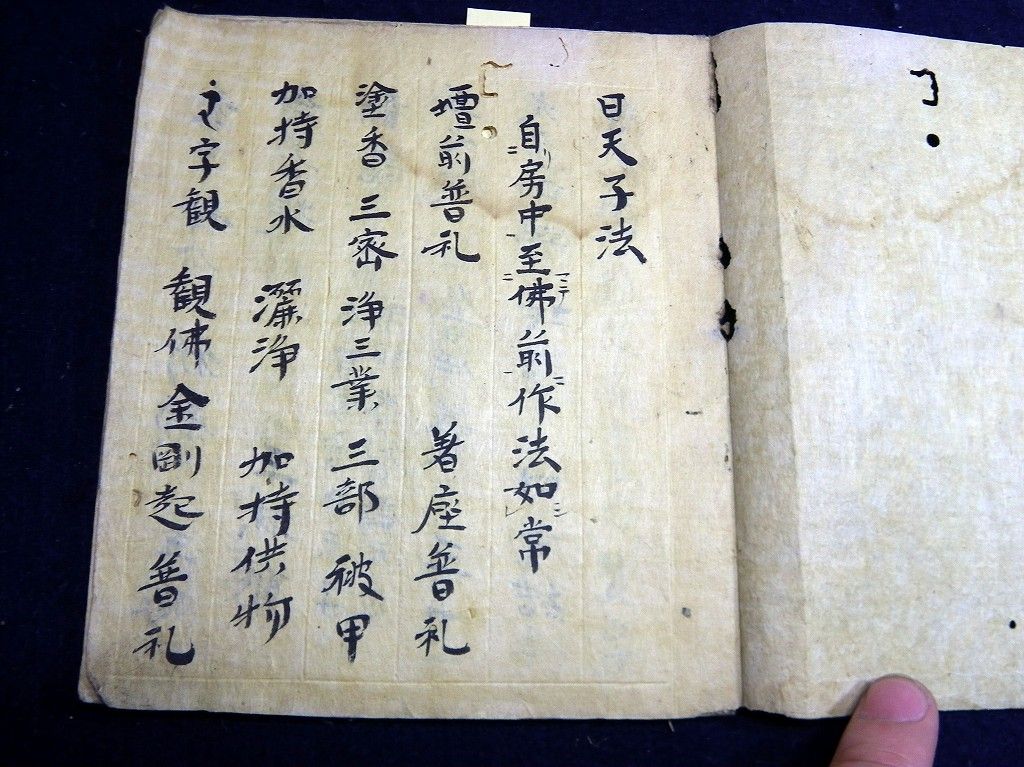 日天子法
自房中至佛前作法如常
壇前普礼 著座普礼
塗香 三密 浄三業 三部 被甲
加持香水 灑浄 加持供物
字観 観佛 金剛起 普礼